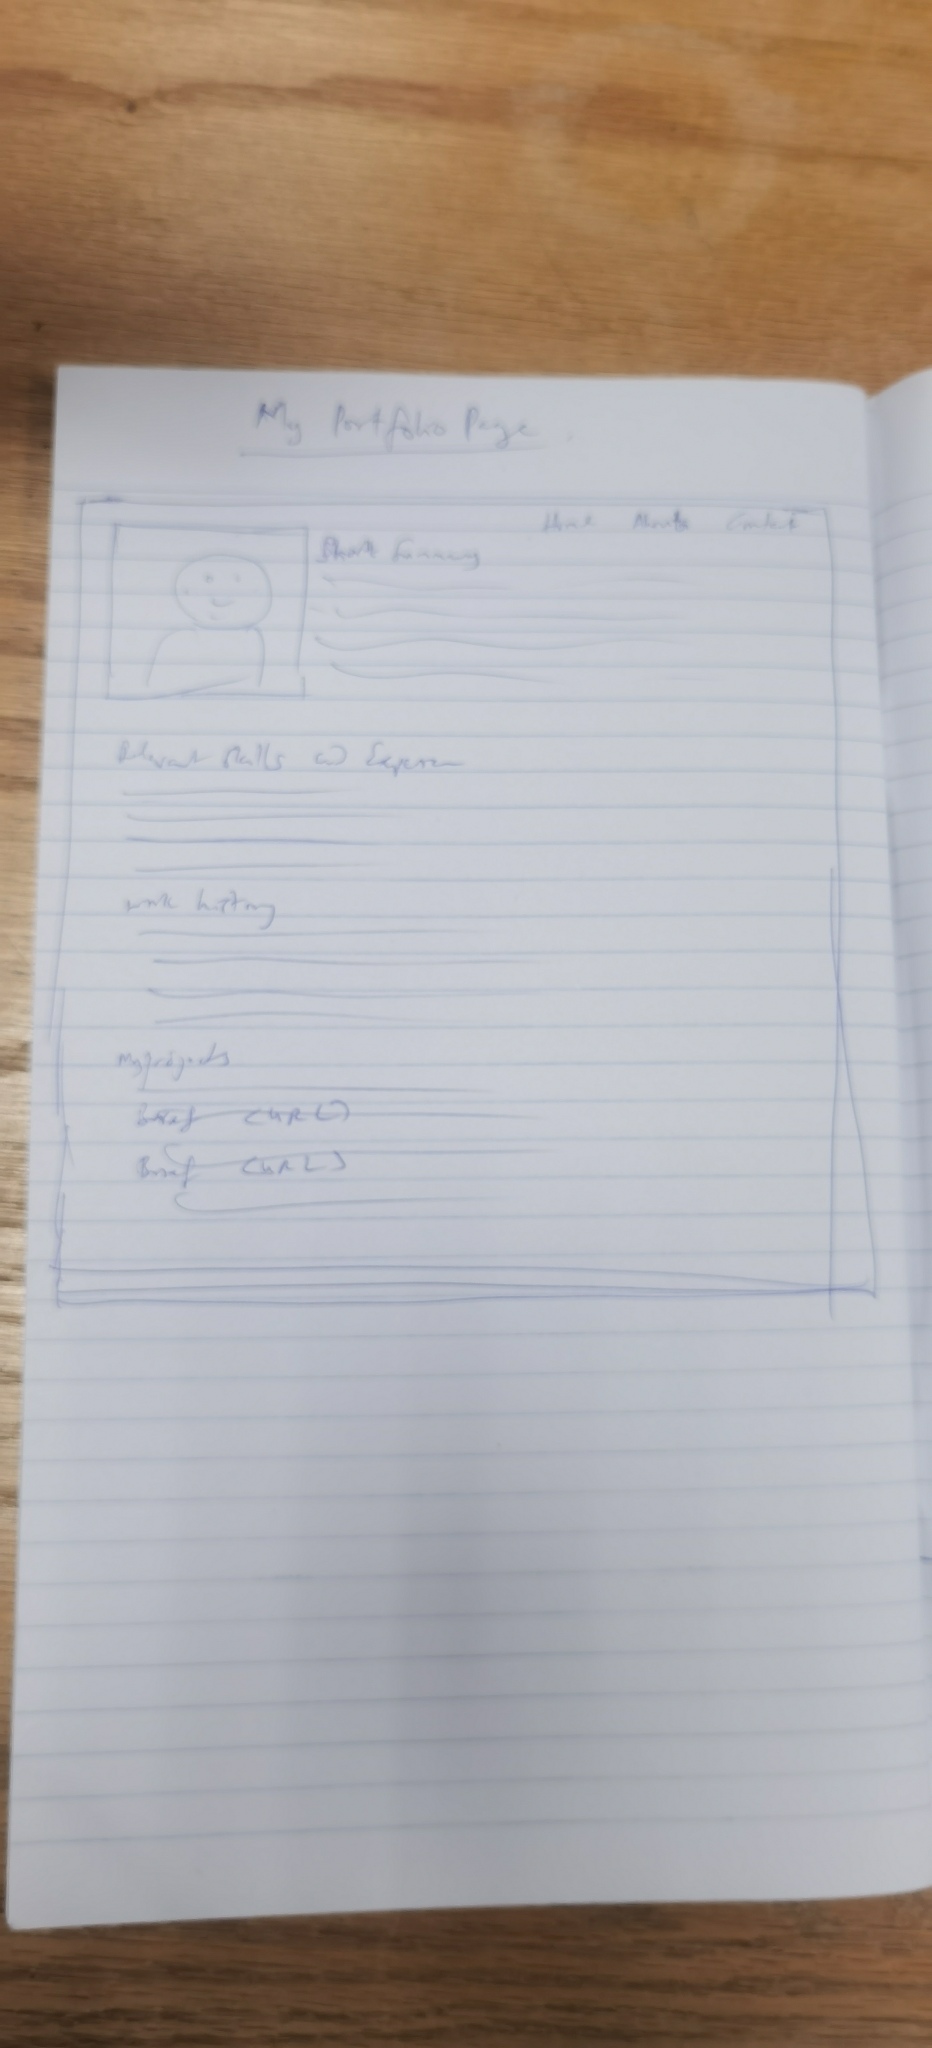 My Portfolio Page
Home Abouts Contact
Short Summary
Relevant Skills Experien
work history
My projects
Brief (URL)
Brief (URL)